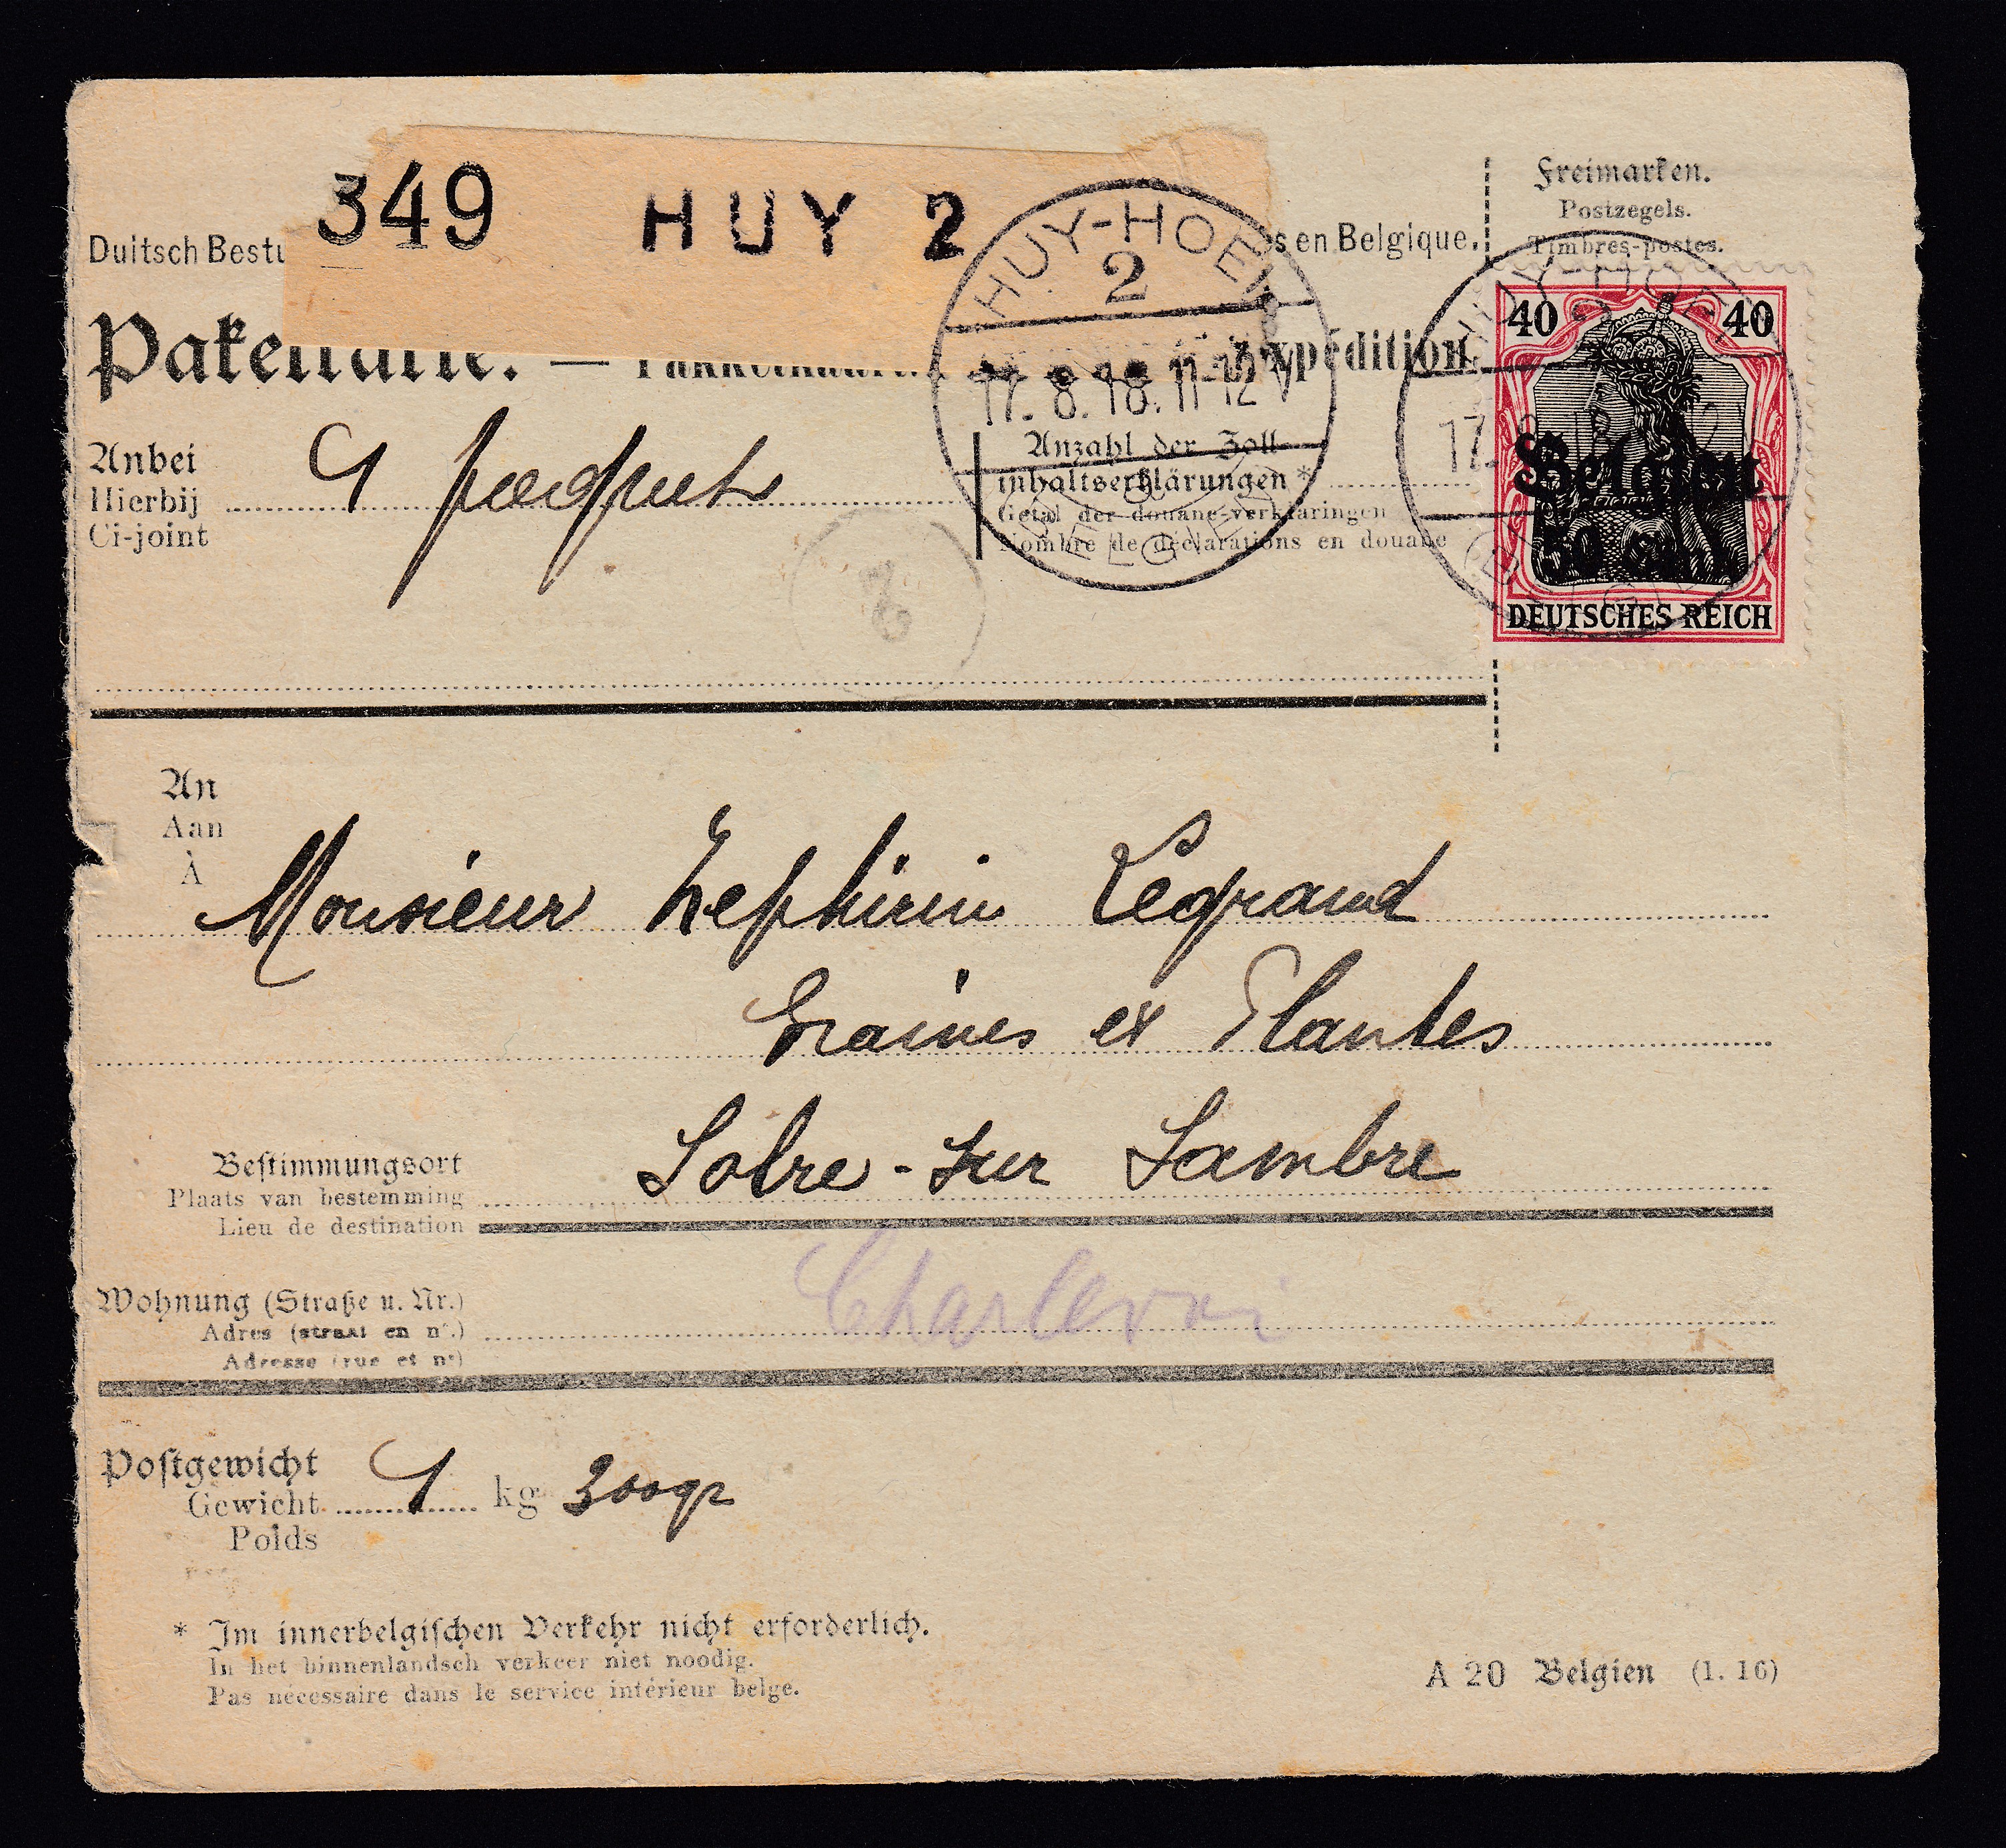 349 HUY 2
Duitsch Bestu
s en Belgique.
Freimarken.
Postzegels.
Timbres-postes.
HUY-HOEI
2
17. 8. 18. 11-12 V
BELGIEN
Paketkarte. —
Expédition.
Anbei
Hierbij
Ci-joint
1 paquet
Anzahl der Zoll-
inhaltserklärungen *
Getal der douane-verklaringen
Nombre de déclarations en douane
HUY-HOEI
17.
40 40
Belgien
50 Cent.
DEUTSCHES REICH
An
Aan
À
Monsieur Zephirin Legrand
Graines et Plantes
Bestimmungsort
Plaats van bestemming
Lieu de destination
Solre-sur Sambre
Wohnung (Straße u. Nr.)
Adres (straat en n°.)
Adresse (rue et n°)
Charleroi
Postgewicht
Gewicht
Poids
1 kg 300gr
* Im innerbelgischen Verkehr nicht erforderlich.
In het binnenlandsch verkeer niet noodig.
Pas nécessaire dans le service intérieur belge.
A 20 Belgien (1. 16)